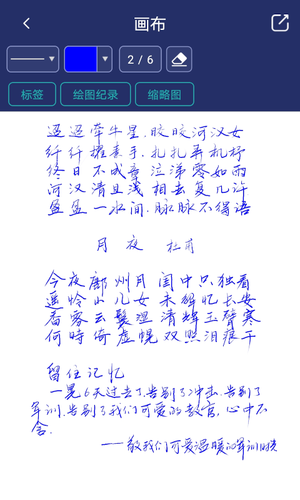 画布
2 / 6
标签
绘图纪录
缩略图
迢迢牵牛星,皎皎河汉女
纤纤擢素手,扎扎弄机杼
终日不成章 泣涕零如雨
河汉清且浅 相去复几许
盈盈一水间,脉脉不得语
月夜 杜甫
今夜鄜州月 闺中只独看
遥怜小儿女 未解忆长安
香雾云鬟湿 清辉玉臂寒
何时倚虚幌 双照泪痕干
留住记忆
一晃6天过去了,告别了冲击,告别了
军训,告别了我们可爱的教官,心中不
舍。
——致我们可爱温暖的军训时光